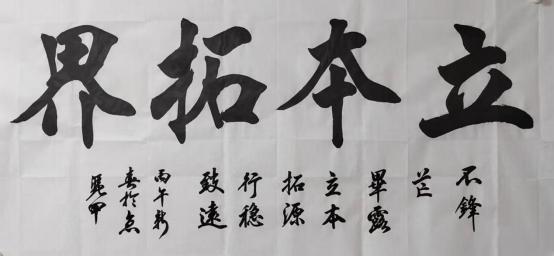 立本拓界
不鋒
芒
畢露
立本
拓源
行稳
致遠
丙午新
春於点
甲